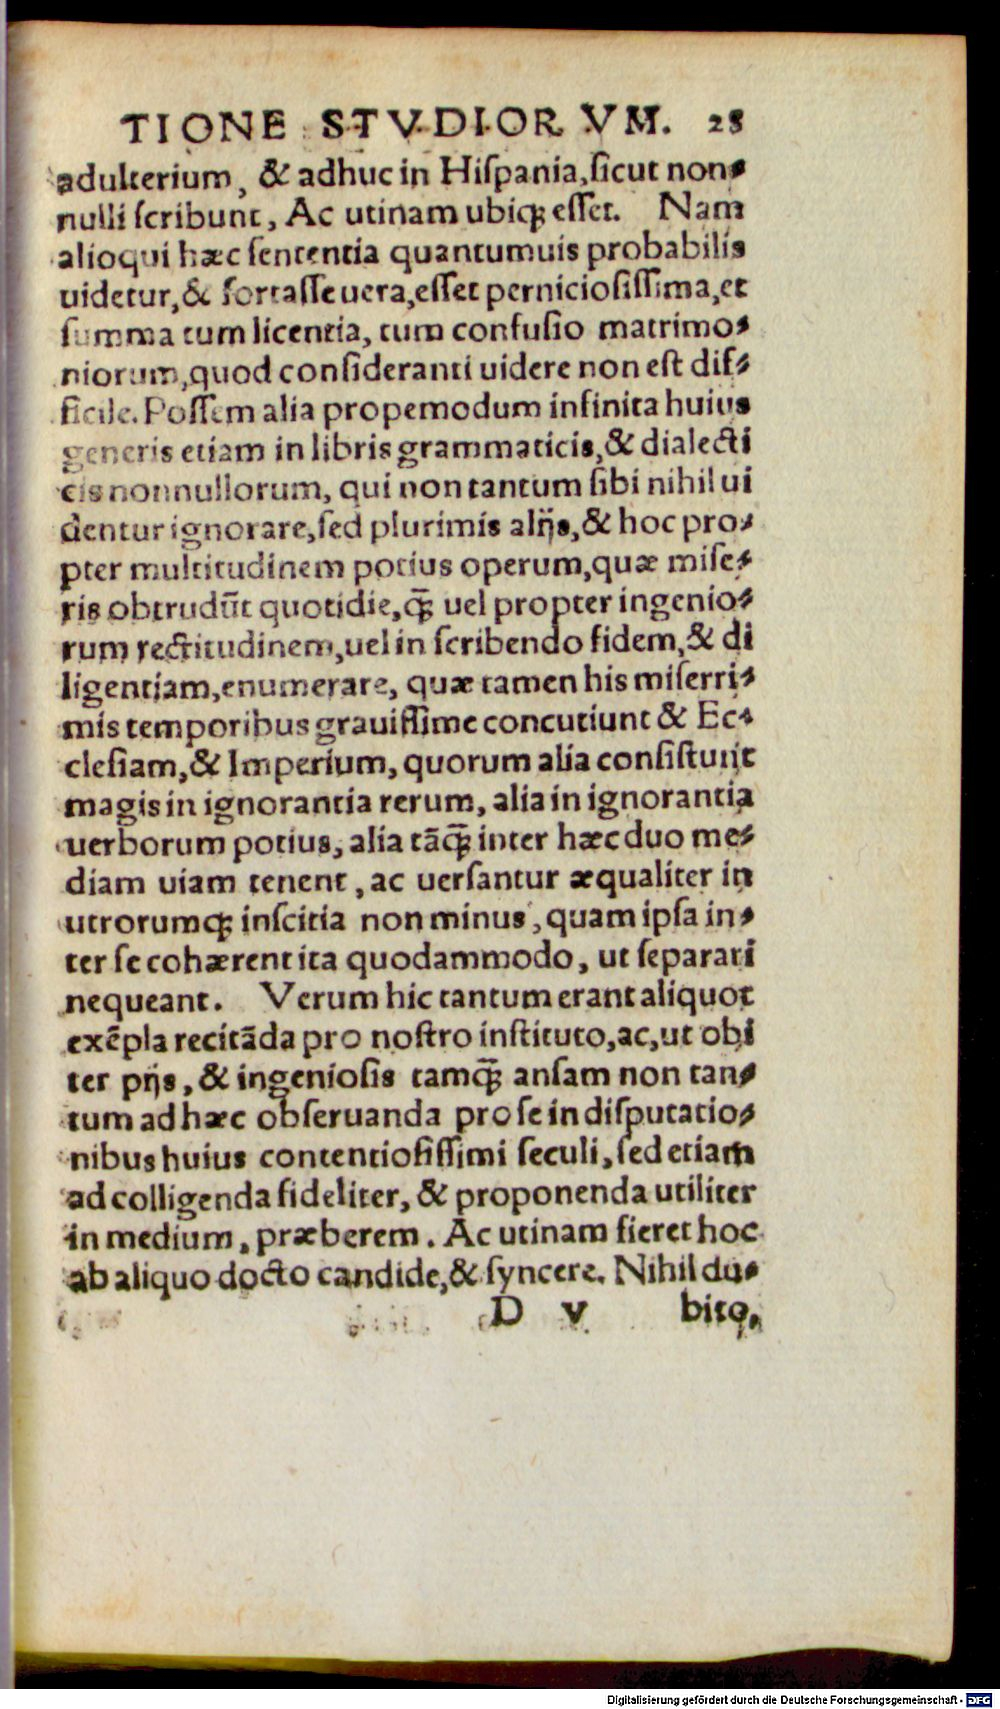 TIONE STVDIORVM. 28
adulterium, & adhuc in Hiſpania, ſicut non⸗
nulli ſcribunt, Ac utinam ubiq; eſſet. Nam
alioqui hæc ſententia quantumuis probabilis
uidetur, & fortaſſe uera, eſſet pernicioſiſſima, et
ſumma tum licentia, tum confuſio matrimo⸗
niorum, quod conſideranti uidere non eſt dif⸗
ficile. Poſſem alia propemodum infinita huius
generis etiam in libris grammaticis, & dialecti
cis nonnullorum, qui non tantum ſibi nihil ui
dentur ignorare, ſed plurimis alijs, & hoc pro⸗
pter multitudinem potius operum, quæ miſe⸗
ris obtrudūt quotidie, q̄; uel propter ingenio⸗
rum rectitudinem, uel in ſcribendo fidem, & di
ligentiam, enumerare, quæ tamen his miſerri⸗
mis temporibus grauiſſime concutiunt & Ec⸗
cleſiam, & Imperium, quorum alia conſiſtunt
magis in ignorantia rerum, alia in ignorantia
uerborum potius, alia tāq̄; inter hæc duo me⸗
diam uiam tenent, ac uerſantur æqualiter in
utrorumq; inſcitia non minus, quam ipſa in⸗
ter ſe cohærent ita quodammodo, ut ſeparari
nequeant. Verum hic tantum erant aliquot
exēpla recitāda pro noſtro inſtituto, ac, ut obi
ter pijs, & ingenioſis tamq̄; anſam non tan⸗
tum ad hæc obſeruanda pro ſe in diſputatio⸗
nibus huius contentioſiſſimi ſeculi, ſed etiam
ad colligenda fideliter, & proponenda utiliter
in medium, præberem. Ac utinam fieret hoc
ab aliquo docto candide, & ſyncere. Nihil du⸗
D v bito,
Digitalisierung gefördert durch die Deutsche Forschungsgemeinschaft - DFG